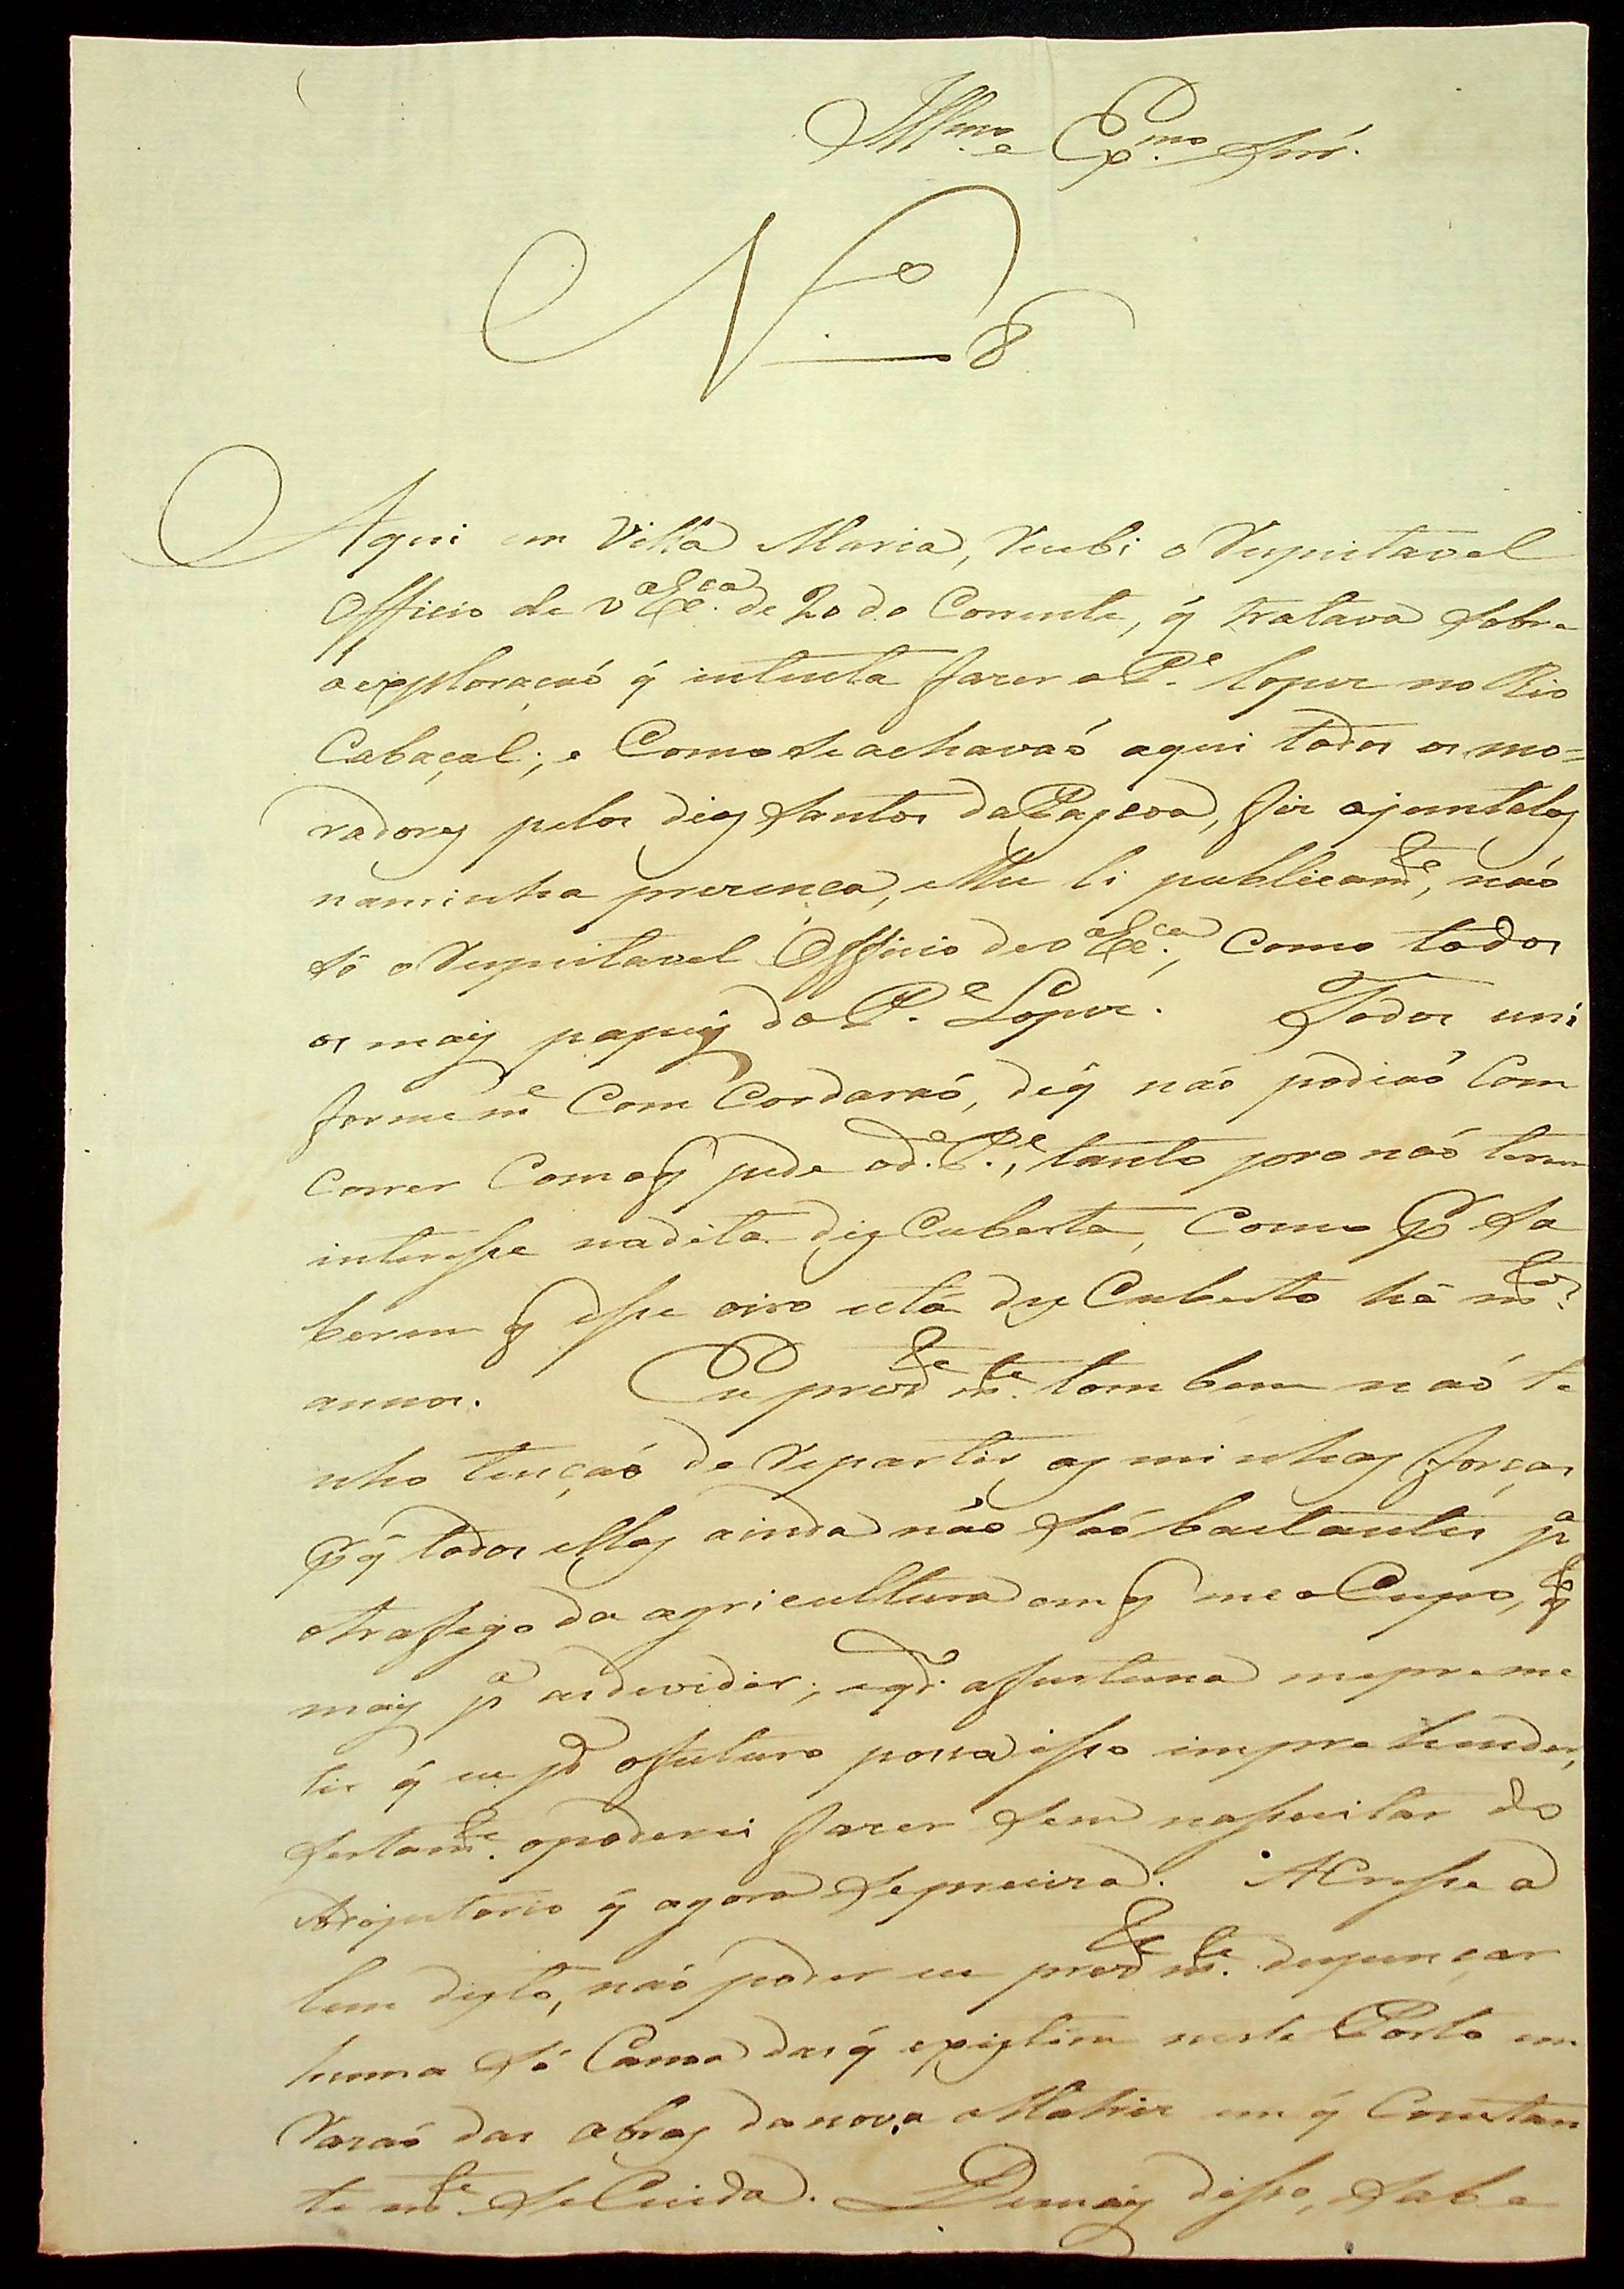 Illmo. e Exmo. Snr.
N.o 8
Aqui em Villa Maria, recebi o respeitavel
Officio de V.a Ex.ca de 20 do Corrente, q̃ tratava sobre
a exploraçaõ q̃ intenta fazer o P.e Lopes no Rio
Cabaçal; e Como se achavaõ aqui todos os mo=
radores pelos dias Santos da Pascoa, fiz ajuntalos
na minha prezença, e lhe li publicam.te, naõ
só o respeitavel Officio de V.a Ex.ca, Como todos
os mais papeis do P.e Lopes. Todos uni
formem.e Com Cordaraõ, de q̃ naõ podiaõ Com
correr Com o q̃ pede o d.o P.e, tanto por naõ terem
interesse na dita des Cuberta, Como p.r sa
berem q̃ esse oiro está des Cuberto há m.tos
annos. Eu prez.tem.te tambem naõ te
nho tençaõ de repartir as minhas forças
p.r q̃ todas ellas ainda naõ saõ bastantes p.a
o trafego da agricultura em q̃ me o Cupo, q.to
mais p.a as devidir; e q.do a fortuna me prome
tir q̃ eu p.a o futuro possa isso imprehender,
sertam.te o poderei fazer sem nessecitar do
Adjutorio q̃ agora se preciza. ACresse a
lem disto, naõ poder eu prez.tem.te despençar
huma só Canoa das q̃ existem neste Porto em
razaõ das obras da nova Matriz em q̃ Constan
tem.te se Cuida. Demais disso, sabe